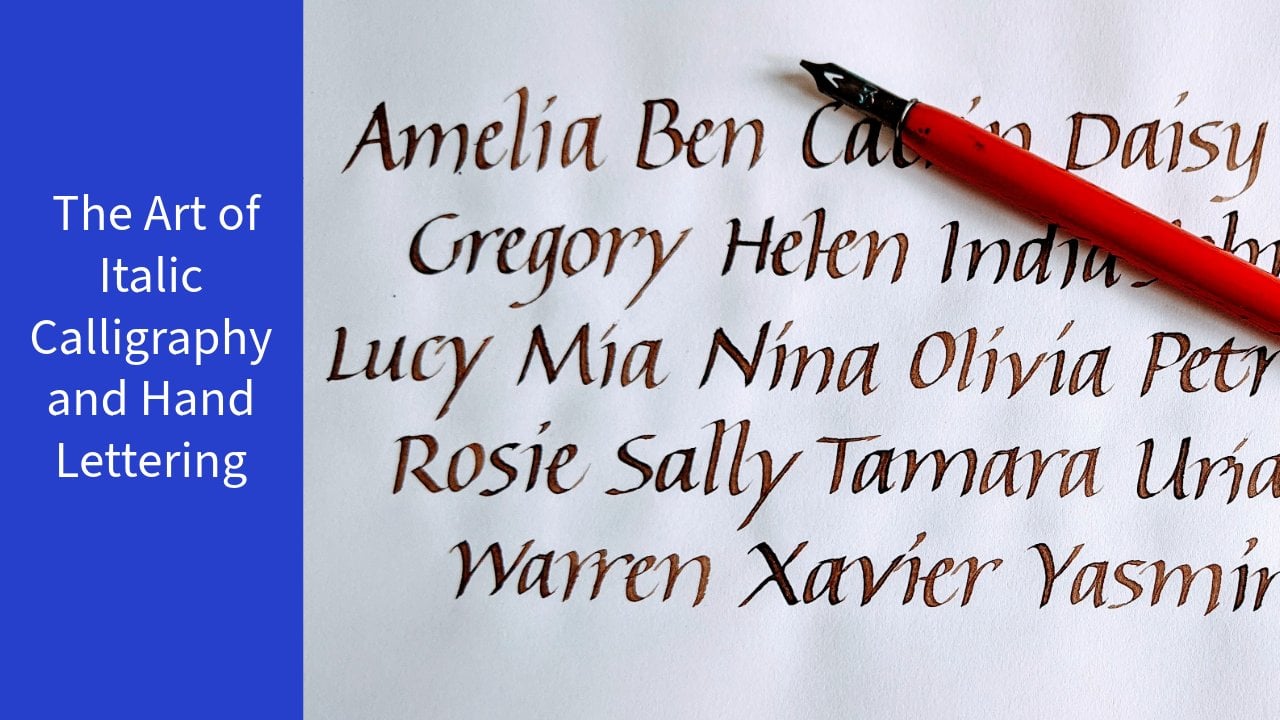 The Art of
Italic
Calligraphy
and Hand
Lettering
Amelia Ben Daisy
Gregory Helen India
Lucy Mia Nina Olivia
Rosie Sally Tamara
Warren Xavier